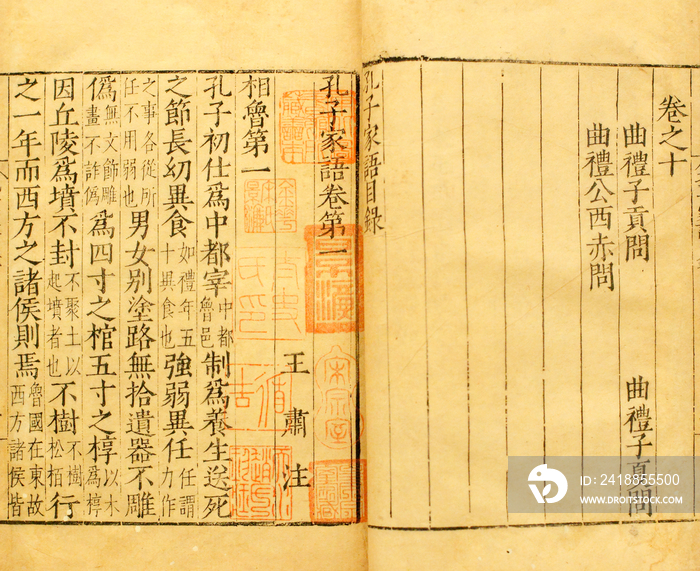 卷之十
曲禮子貢問 曲禮子夏問
曲禮公西赤問
孔子家語目錄
孔子家語卷第一
王肅注
相魯第一
孔子初仕爲中都宰中都魯邑制爲養生送死
之節長幼異食如禮年五十異食也強弱異任任謂力作
之事各從所任不用弱也男女別塗路無拾遺器不雕
僞無文飾雕畫不詐僞爲四寸之棺五寸之椁以木爲椁
因丘陵爲墳不封不聚土以起墳者也不樹不樹松栢行
之一年而西方之諸侯則焉魯國在東故西方諸侯皆
ID: 2418855500
WWW.DROITSTOCK.COM